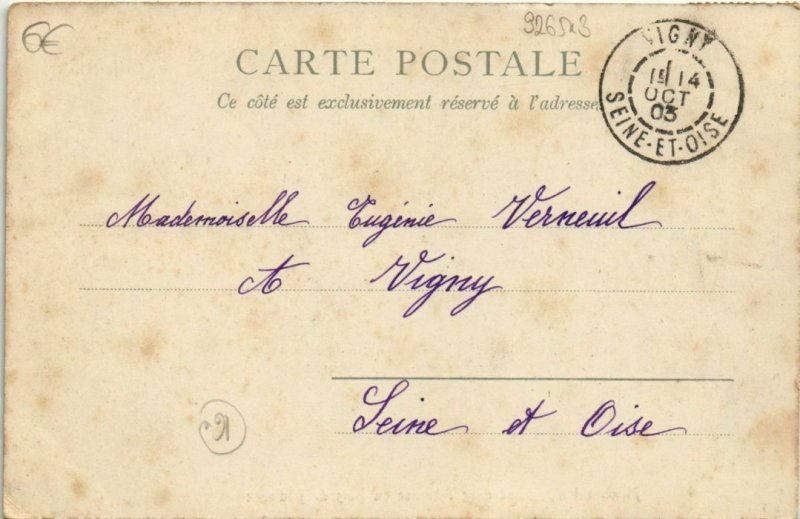 6€
CARTE POSTALE
Ce côté est exclusivement réservé à l'adresse
VIGNY
14
OCT
03
SEINE-ET-OISE
Mademoiselle Eugénie Verneuil
A Vigny
Seine et Oise